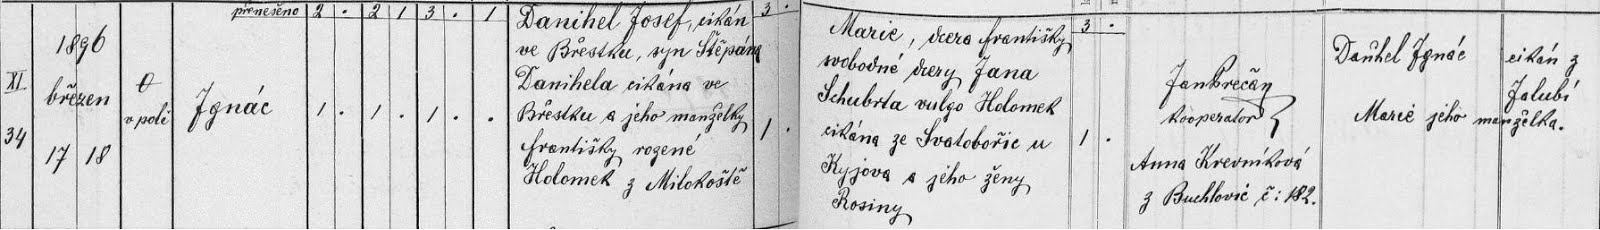 přenešeno 2 . 2 1 3 . 1
3 .
3 .
XI
34
1896
březen
17 18
0
v poli
Ignác
1 . 1 . 1 . .
Danihel Josef, cikán
ve Břestku, syn Štěpána
Danihela cikána ve
Břestku a jeho manželky
Františky rozené
Holomek z Milokoště
1 .
Marie, dcera Františky
svobodné dcery Jana
Schubrta vulgo Holomek
cikána ze Svatobořic u
Kyjova a jeho ženy
Rosiny
1 .
Jan Prečan
kooperator
Anna Krevníková
z Buchlovic č: 182.
Daňhel Ignác
Marie jeho manželka.
cikán z
Jalubí